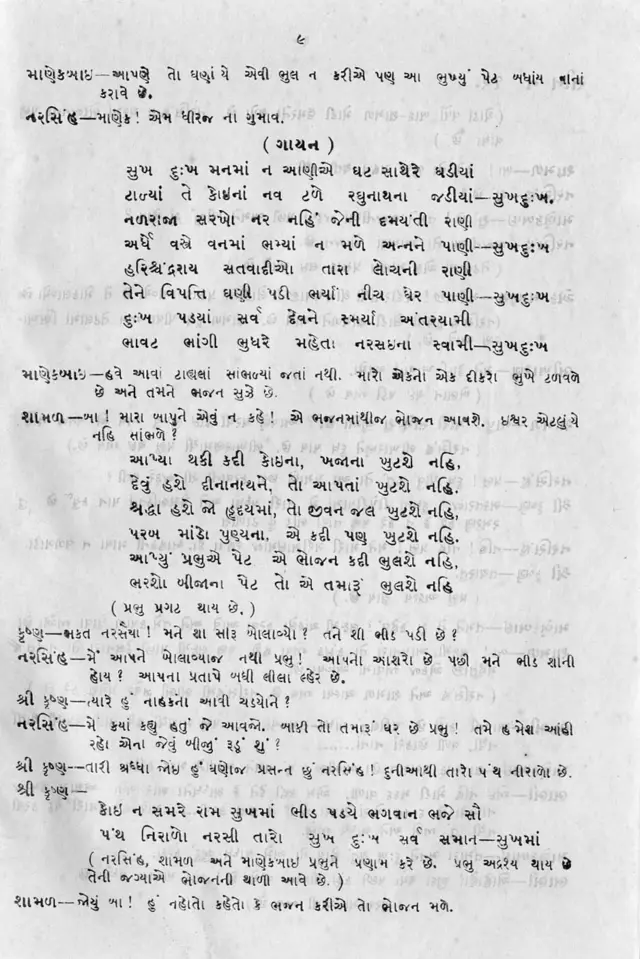 ૯
માણેકબાઇ—આપણે તો ઘણાં યે એવી ભુલ ન કરીએ પણ આ ભુખ્યું પેટ બધાંય વાનાં
કરાવે છે.
નરસિંહ—માણેક! એમ ધીરજ ના ગુમાવ.
( ગાયન )
સુખ દુઃખ મનમાં ન આણીએ ઘટ સાથેરે ઘડીયાં
ટાળ્યાં તે કોઇનાં નવ ટળે રઘુનાથના જડીયાં—સુખદુઃખ.
નળરાજા સરખો નર નહિં જેની દમયંતી રાણી
અર્ધે વસ્ત્રે વનમાં ભમ્યાં ન મળે અન્નને પાણી—સુખદુઃખ
હરિશ્ચંદ્રરાય સતવાદીઓ તારા લોચની રાણી
તેને વિપત્તિ ઘણી પડી ભર્યાં નીચ ઘેર પાણી—સુખદુઃખ
દુઃખ પડયાં સર્વ દેવને સ્મર્યા અંતરયામી
ભાવટ ભાંગી ભુધરે મહેતા નરસઇના સ્વામી—સુખદુઃખ
માણેકબાઇ—હવે આવાં ટાહ્યલાં સાંભળ્યાં જતાં નથી. મારો એકનો એક દીકરો ભુખે ટળવળે
છે અને તમને ભજન સુઝે છે.
શામળ—બા! મારા બાપુને એવું ન કહે! એ ભજનમાંથીજ ભોજન આવશે. ઇશ્વર એટલુંયે
નહિ સાંભળે?
આપ્યા થકી કદી કોઇના, ખજાના ખુટશે નહિ,
દેવું હશે દીનાનાથને, તો આપતાં ખુટશે નહિ.
શ્રદ્ધા હશે જો હૃદયમાં, તો જીવન જલ ખુટશે નહિ,
પરબ માંડો પુણ્યના, એ કદી પણ ખુટશે નહિ.
આપ્યું પ્રભુએ પેટ એ ભોજન કદી ભુલશે નહિ,
ભરશો બીજાના પેટ તો એ તમારૂં ભુલશે નહિ
( પ્રભુ પ્રગટ થાય છે. )
કૃષ્ણ—ભકત નરસૈયા! મને શા સારૂ બોલાવ્યો? તને શી ભીડ પડી છે?
નરસિંહ—મેં આપને બોલાવ્યાજ નથી પ્રભુ! આપનો આશરો છે પછી મને ભીડ શાની
હોય? આપના પ્રતાપે બધી લીલા લ્હેર છે.
શ્રી કૃષ્ણ—ત્યારે હું નાહકનો આવી ચડયોને?
નરસિંહ—મેં કયાં કહ્યુ હતું જે આવજો. બાકી તો તમારૂં ઘર છે પ્રભુ! તમે હમેશ આંહી
રહો એના જેવું બીજું રૂડું શું?
શ્રી કૃષ્ણ—તારી શ્રધ્ધા જોઇ હું ઘણોજ પ્રસન્ત છું નરસિંહ! દુનીઆથી તારો પંથ નીરાળો છે.
શ્રી કૃષ્ણ—
કોઇ ન સમરે રામ સુખમાં ભીડ પડયે ભગવાન ભજે સૌ
પંથ નિરાળો નરસી તારો સુખ દુઃખ સર્વ સમાન—સુખમાં
( નરસિંહ, શામળ અને માણેકબાઇ પ્રભુને પ્રણામ કરે છે. પ્રભુ અદ્રશ્ય થાય છે
તેની જગ્યાએ ભોજનની થાળી આવે છે. )
શામળ—જોયું બા! હું નહોતો કહેતો કે ભજન કરીએ તો ભોજન મળે.